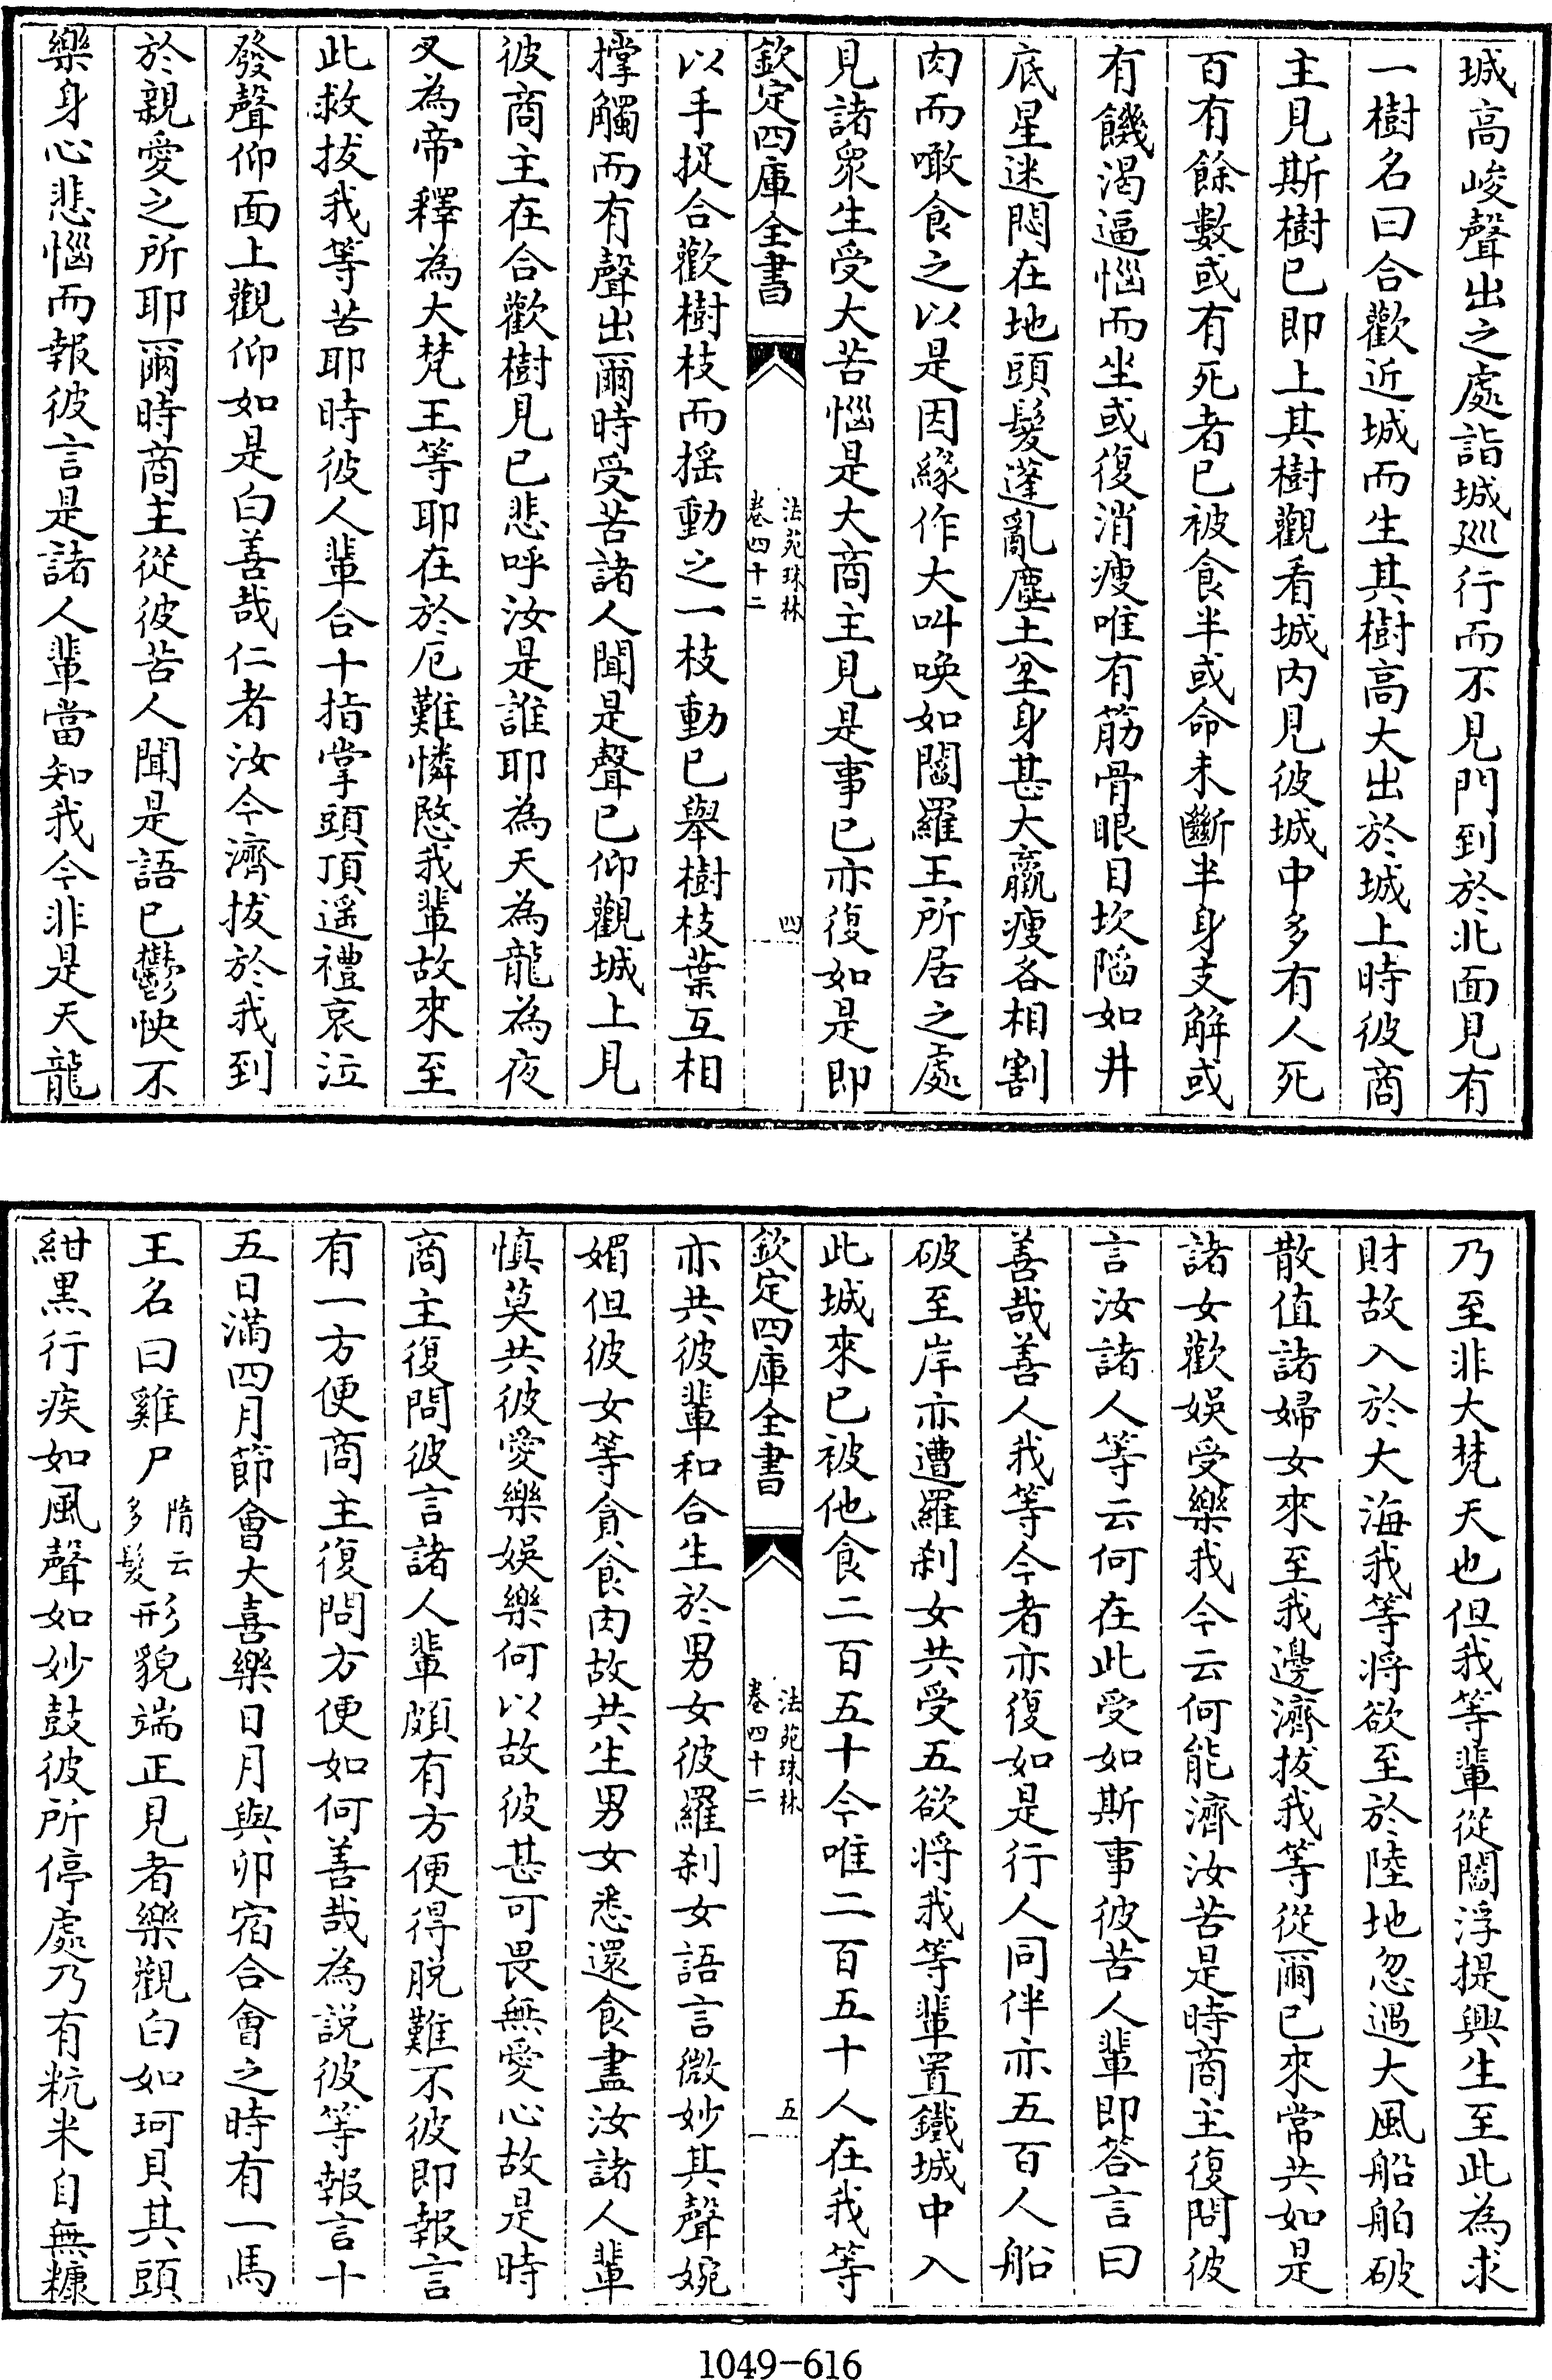 城高峻聲出之處詣城巡行而不見門到於北面見有
一樹名曰合歡近城而生其樹高大出於城上時彼商
主見斯樹已即上其樹觀看城内見彼城中多有人死
百有餘數或有死者已被食半或命未斷半身支解或
有饑渴逼惱而坐或復消瘦唯有筋骨眼目坎陷如井
底星迷悶在地頭髮蓬亂塵土坌身甚大羸瘦各相割
肉而噉食之以是因緣作大叫喚如閻羅王所居之處
見諸衆生受大苦惱是大商主見是事已亦復如是即
欽定四庫全書
法苑珠林
卷四十二
四
以手捉合歡樹枝而摇動之一枝動已舉樹枝葉互相
撑觸而有聲出爾時受苦諸人聞是聲已仰觀城上見
彼商主在合歡樹見已悲呼汝是誰耶為天為龍為夜
叉為帝釋為大梵王等耶在於厄難憐愍我輩故來至
此救拔我等苦耶時彼人輩合十指掌頭頂遥禮哀泣
發聲仰面上觀仰如是白善哉仁者汝今濟拔於我到
於親愛之所耶爾時商主從彼苦人聞是語已鬱怏不
樂身心悲惱而報彼言是諸人輩當知我今非是天龍
乃至非大梵天也但我等輩從閻浮提興生至此為求
財故入於大海我等將欲至於陸地忽遇大風船舶破
散值諸婦女來至我邊濟拔我等從爾已來常共如是
諸女歡娱受樂我今云何能濟汝苦是時商主復問彼
言汝諸人等云何在此受如斯事彼苦人輩即答言曰
善哉善人我等今者亦復如是行人同伴亦五百人船
破至岸亦遭羅刹女共受五欲將我等輩置鐵城中入
此城來已被他食二百五十今唯二百五十人在我等
欽定四庫全書
法苑珠林
卷四十二
五
亦共彼輩和合生於男女彼羅刹女語言微妙其聲婉
媚但彼女等貪食肉故共生男女悉還食盡汝諸人輩
慎莫共彼愛樂娱樂何以故彼甚可畏無愛心故是時
商主復問彼言諸人輩頗有方便得脱難不彼即報言
有一方便商主復問方便如何善哉為説彼等報言十
五日滿四月節會大喜樂日月與卯宿合會之時有一馬
王名曰雞尸隋云多髮形貌端正見者樂觀白如珂貝其頭
紺黒行疾如風聲如妙鼓彼所停處乃有粇米自無糠
1049-616